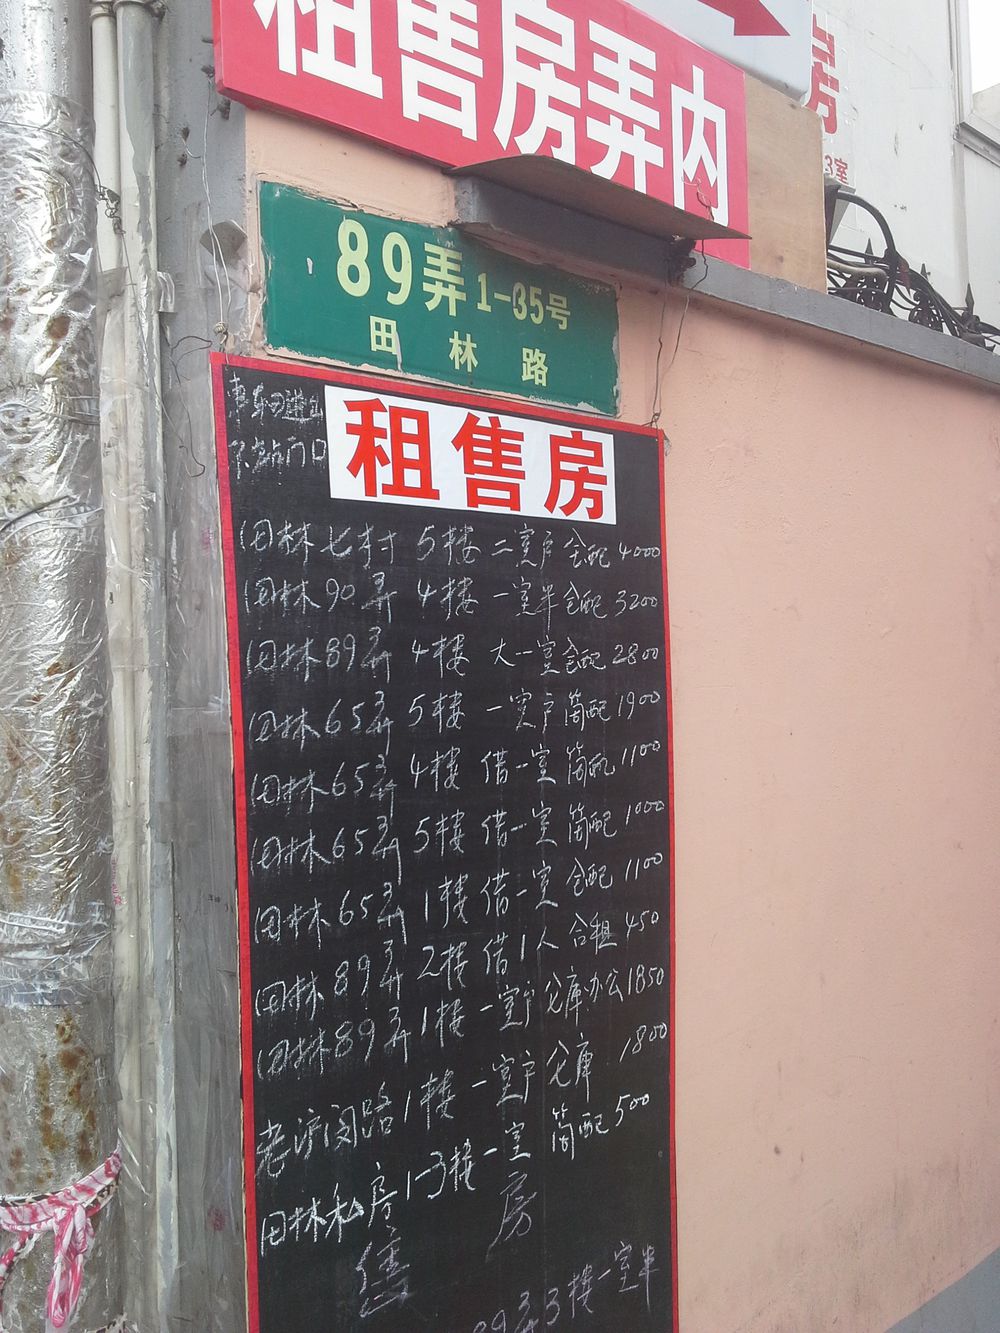 租售房弄内
房
3室
89弄 1-35号
田林路
租售房
田林七村 5楼 二室户 全配 4000
田林90弄 4楼 一室半 全配 3200
田林89弄 4楼 大一室 全配 2800
田林65弄 5楼 一室户 简配 1900
田林65弄 4楼 借一室 简配 1100
田林65弄 5楼 借一室 简配 1000
田林65弄 1楼 借一室 全配 1100
田林89弄 2楼 借1人 合租 450
田林89弄 1楼 一室户 仓库办公 1850
老沪闵路 1楼 一室户 仓库 1800
田林私房 1-3楼 一室 简配 500
售 房
89弄3楼一室半